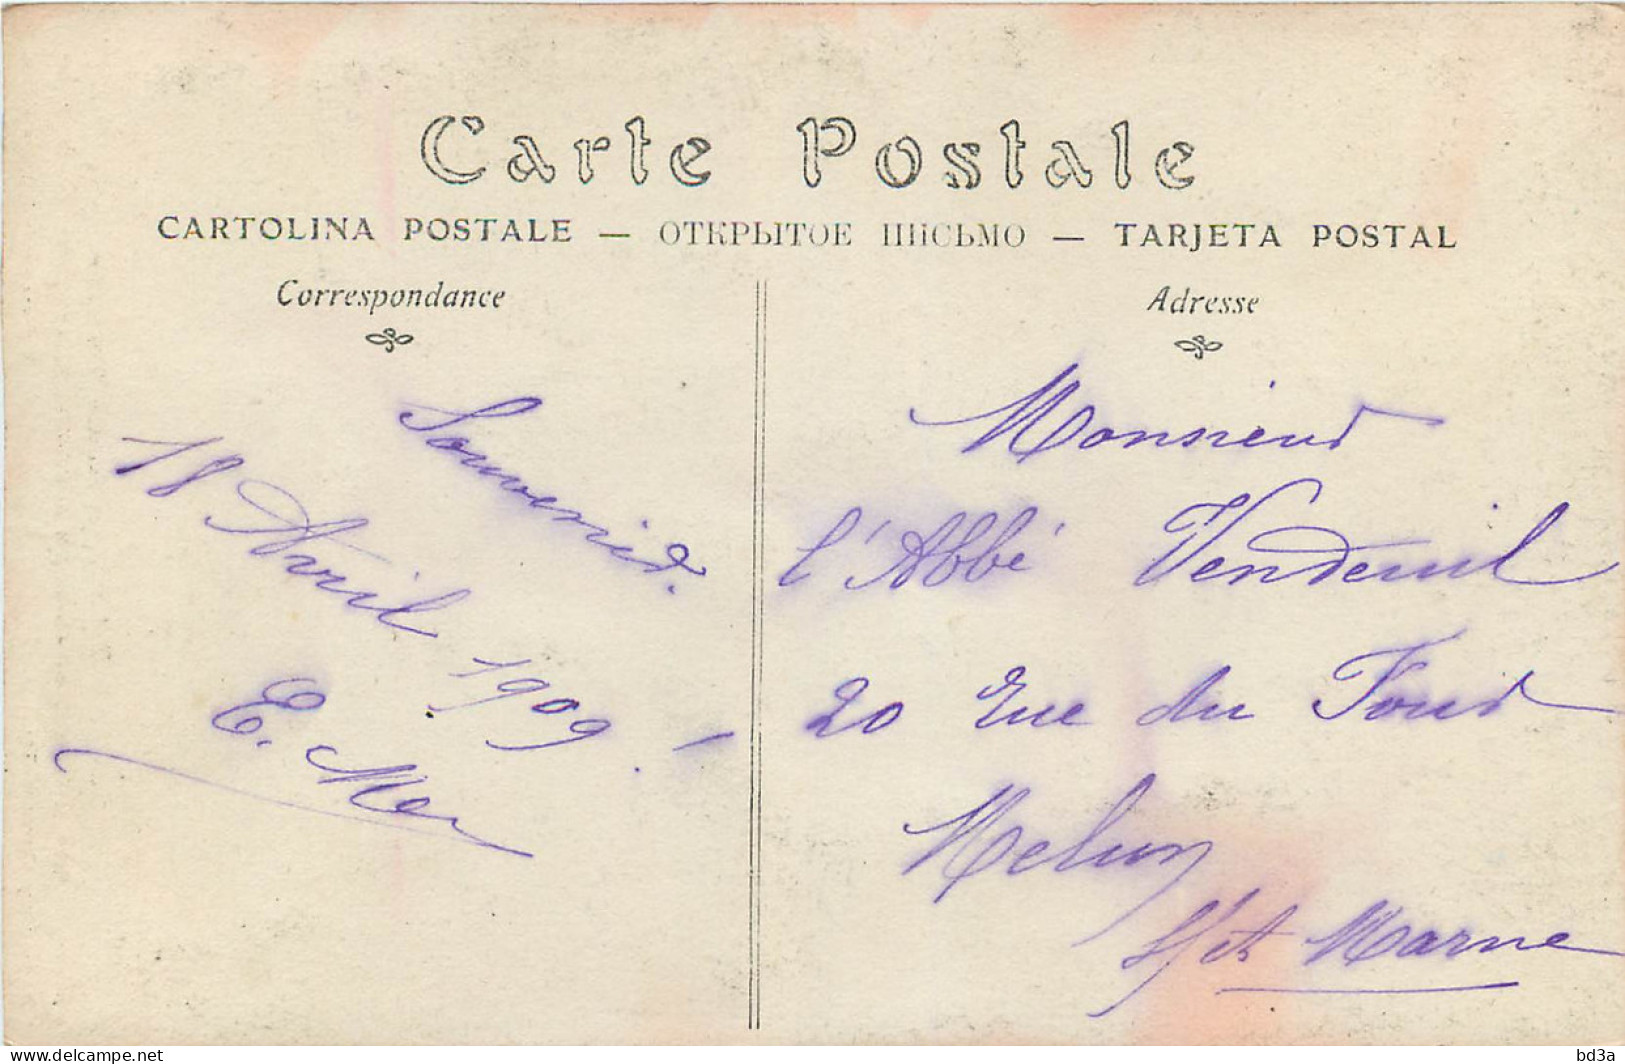 Carte Postale
CARTOLINA POSTALE — ОТКРЫТОЕ ПИСЬМО — TARJETA POSTAL
Correspondance
Souvenir.
18 Avril 1909. –
E.
Adresse
Monsieur
l'Abbé Vendeuil
20 rue du Four
Melun
S/et Marne
www.delcampe.net
bd3a